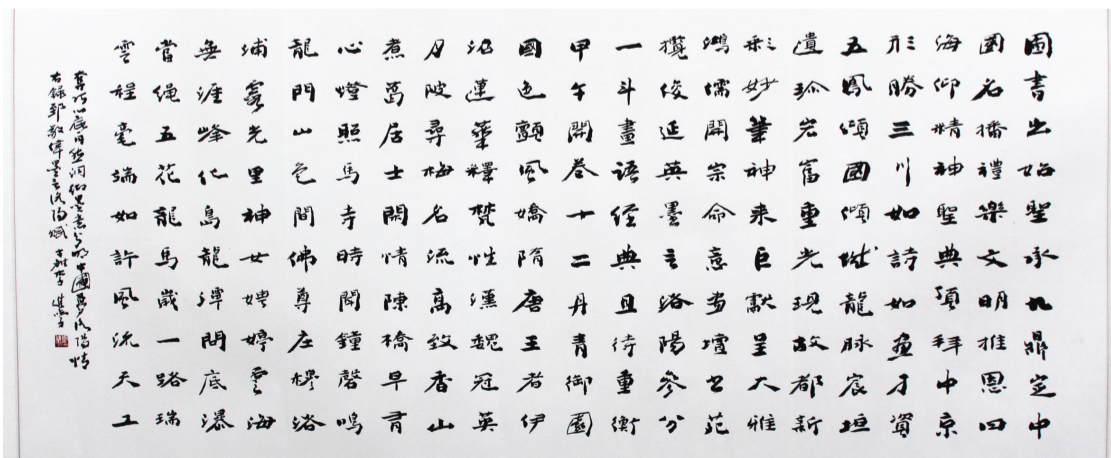 圖書出始聖承九鼎定中
國名播禮樂文明推恩四
海仰精神聖典須拜中京
形勝三川如詩如畫才資
五鳳頌國傾城龍脉宸垣
遺珍宕富重光現故都新
彩妙筆神來巨獻呈大雅
鴻儒開宗命意當壇書苑
攬俊延英墨言洛陽參分
一斗畫語經典且待重衡
甲午開卷十二丹青御園
國色顫風嬌隋唐王者伊
沿蓮藥釋梵性漢魏冠英
月陂尋梅名流高致香山
煮葛居士閑情陳橋早青
心燈照馬寺時聞鐘磬鳴
龍門山色間佛尊庄樛洛
浦雾光里神女娉婷雲海
無涯峰化鳥龍潭閉底瀑
當绳五花龍馬歲一路瑞
雲程毫端如許風流天工
奪巧中國夢洛陽情
右録郅敬偉墨言洛陽賦